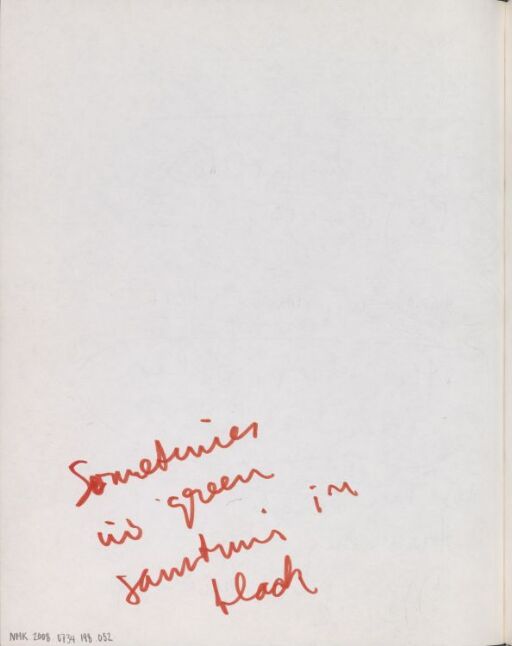 Sometimes
in green
sometimes in
black
NMK. 2008. 0734. 198. 052